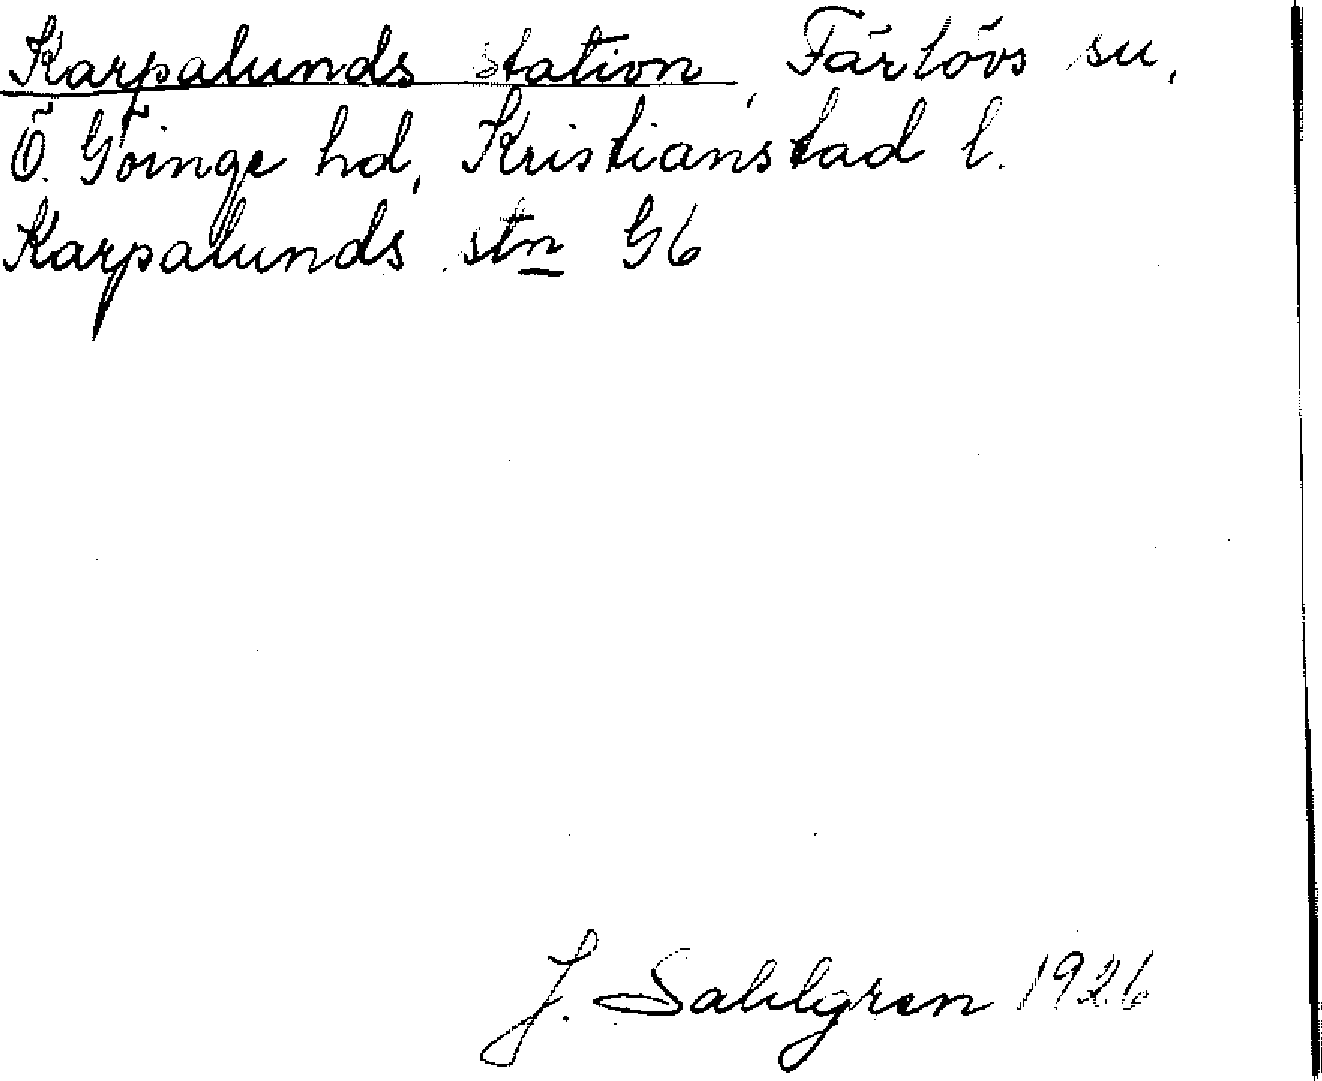 Karpalunds station, Färlövs sn,
Ö. Göinge hd, Kristianstad l.
Karpalunds stn G6
J. Sahlgren 1926